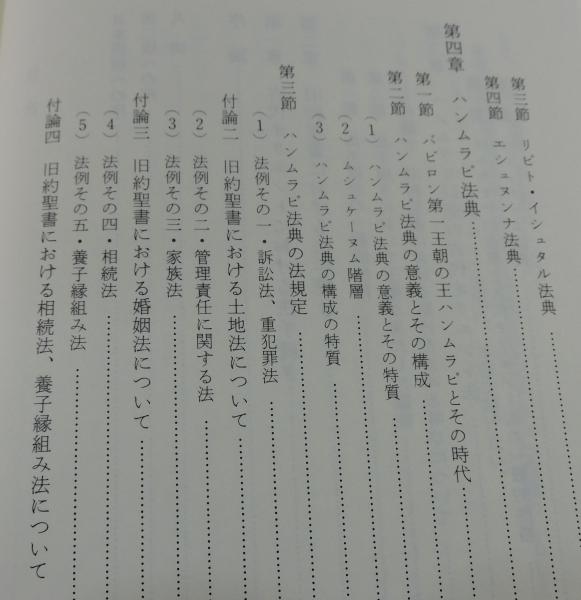 第三節 リピト・イシュタル法典
第四節 エシュヌンナ法典
第四章 ハンムラビ法典
第一節 バビロン第一王朝の王ハンムラビとその時代
第二節 ハンムラビ法典の意義とその構成
(1) ハンムラビ法典の意義とその特質
(2) ムシュケーヌム階層
(3) ハンムラビ法典の構成の特質
第三節 ハンムラビ法典の法規定
(1) 法例その一・訴訟法、重犯罪法
付論二 旧約聖書における土地法について
(2) 法例その二・管理責任に関する法
(3) 法例その三・家族法
付論三 旧約聖書における婚姻法について
(4) 法例その四・相続法
(5) 法例その五・養子縁組み法
付論四 旧約聖書における相続法、養子縁組み法について